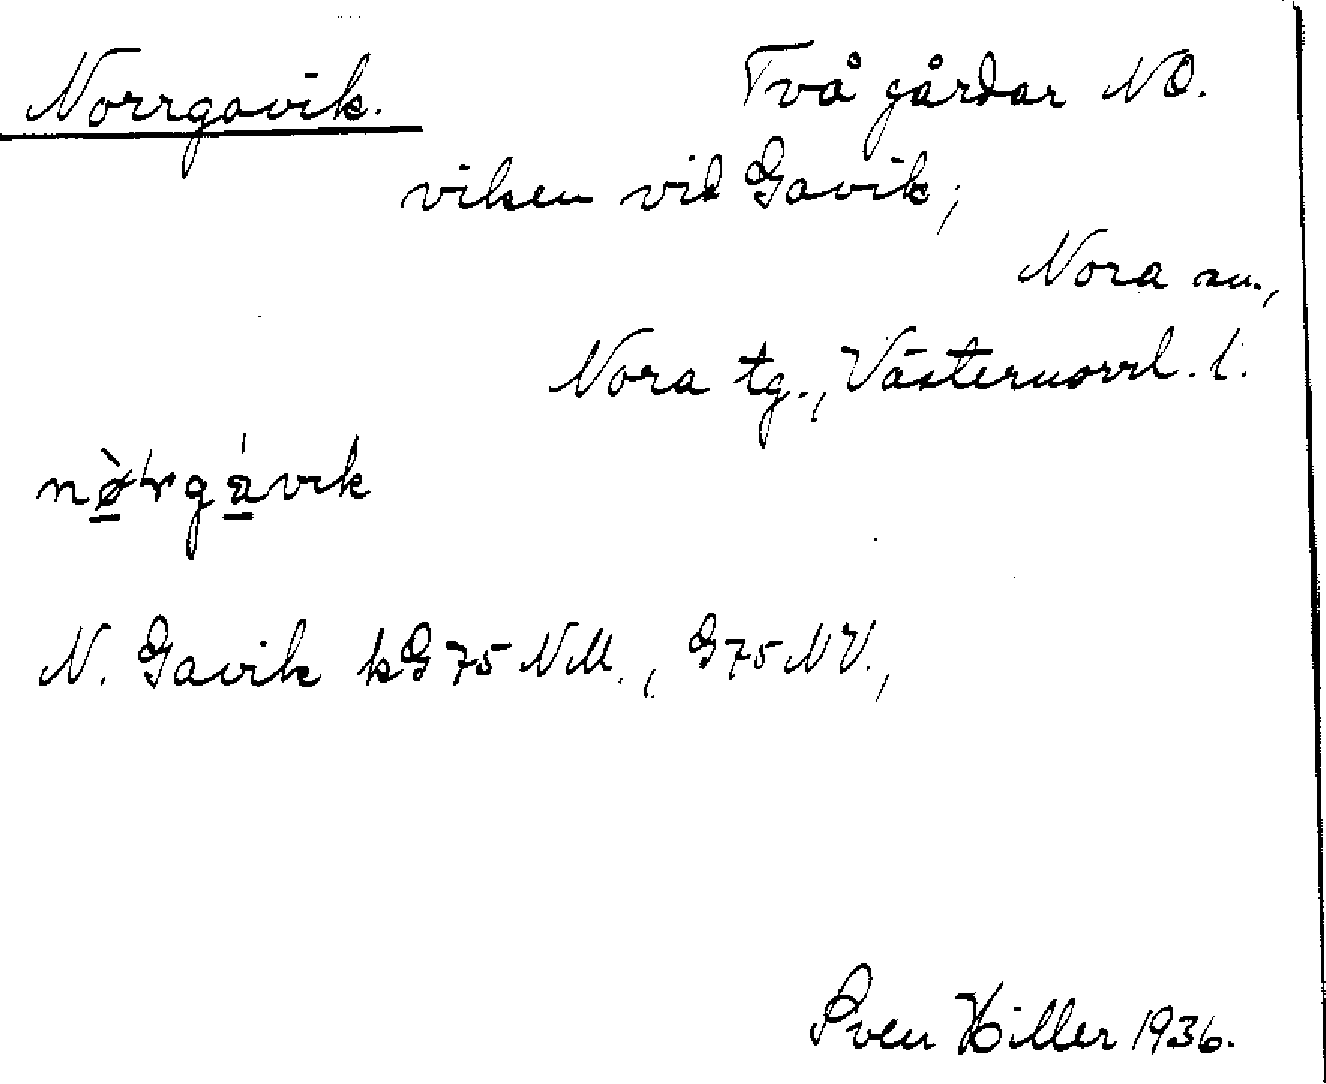 Norrgavik. Två gårdar NO.
viken vid Gavik;
Nora sn.,
Nora tg., Västernorrl. l.
N. Gavik kG 75 NM., G 75 NV.,
Sven Hiller 1936.